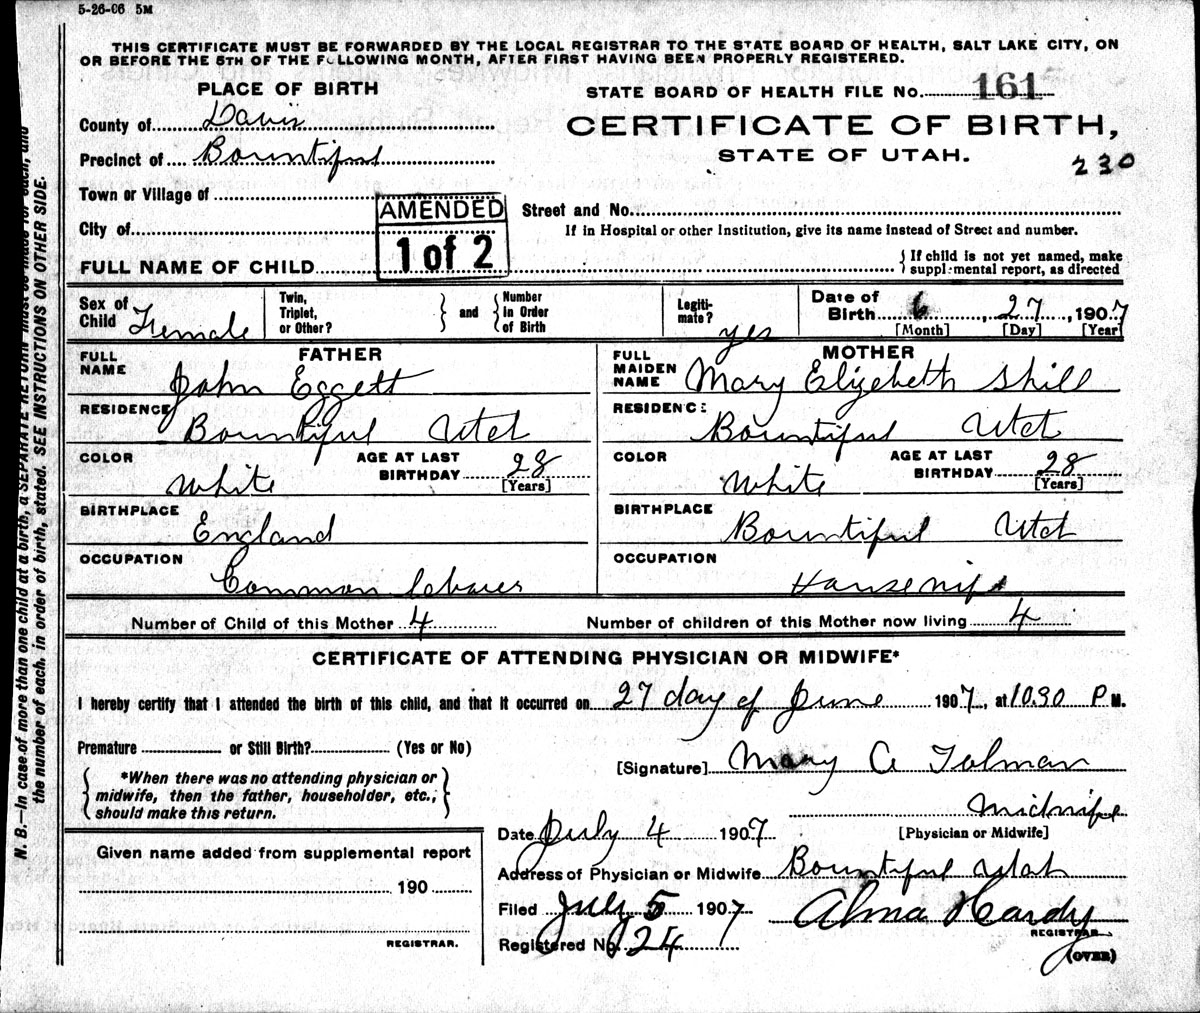 5-26-06 5M
THIS CERTIFICATE MUST BE FORWARDED BY THE LOCAL REGISTRAR TO THE STATE BOARD OF HEALTH, SALT LAKE CITY, ON
OR BEFORE THE 5TH OF THE FOLLOWING MONTH, AFTER FIRST HAVING BEEN PROPERLY REGISTERED.
PLACE OF BIRTH
STATE BOARD OF HEALTH FILE No. 161
County of Davis
CERTIFICATE OF BIRTH,
Precinct of Bountiful
STATE OF UTAH.
230
Town or Village of
AMENDED
1 of 2
Street and No.
City of
If in Hospital or other Institution, give its name instead of Street and number.
FULL NAME OF CHILD
{ If child is not yet named, make
supplemental report, as directed
Sex of
Child Female
Twin,
Triplet,
or Other?
} and {
Number
in Order
of Birth
Legiti-
mate? yes
Date of
Birth 6, 27, 1907
[Month] [Day] [Year]
FATHER
FULL
NAME John Eggett
RESIDENCE
Bountiful Utah
COLOR White
AGE AT LAST
BIRTHDAY 28
[Years]
BIRTHPLACE
England
OCCUPATION
Common labarer
MOTHER
FULL
MAIDEN
NAME Mary Elizebeth Shill
RESIDENCE
Bountiful Utah
COLOR White
AGE AT LAST
BIRTHDAY 28
[Years]
BIRTHPLACE
Bountiful Utah
OCCUPATION
Housewife
Number of Child of this Mother 4
Number of children of this Mother now living 4
CERTIFICATE OF ATTENDING PHYSICIAN OR MIDWIFE*
I hereby certify that I attended the birth of this child, and that it occurred on 27 day of June 1907, at 10.30 P M.
Premature or Still Birth? (Yes or No)
[Signature] Mary A Tolman
{ *When there was no attending physician or
midwife, then the father, householder, etc.,
should make this return. }
Midwife
[Physician or Midwife]
Date July 4 1907
Given name added from supplemental report
190
REGISTRAR.
Address of Physician or Midwife Bountiful Utah
Filed July 5 1907
Alma Hardy
REGISTRAR
Registered No. 124
(OVER)
N. B.—In case of more than one child at a birth, a SEPARATE RETURN must be made for each, and
the number of each, in order of birth, stated. SEE INSTRUCTIONS ON OTHER SIDE.